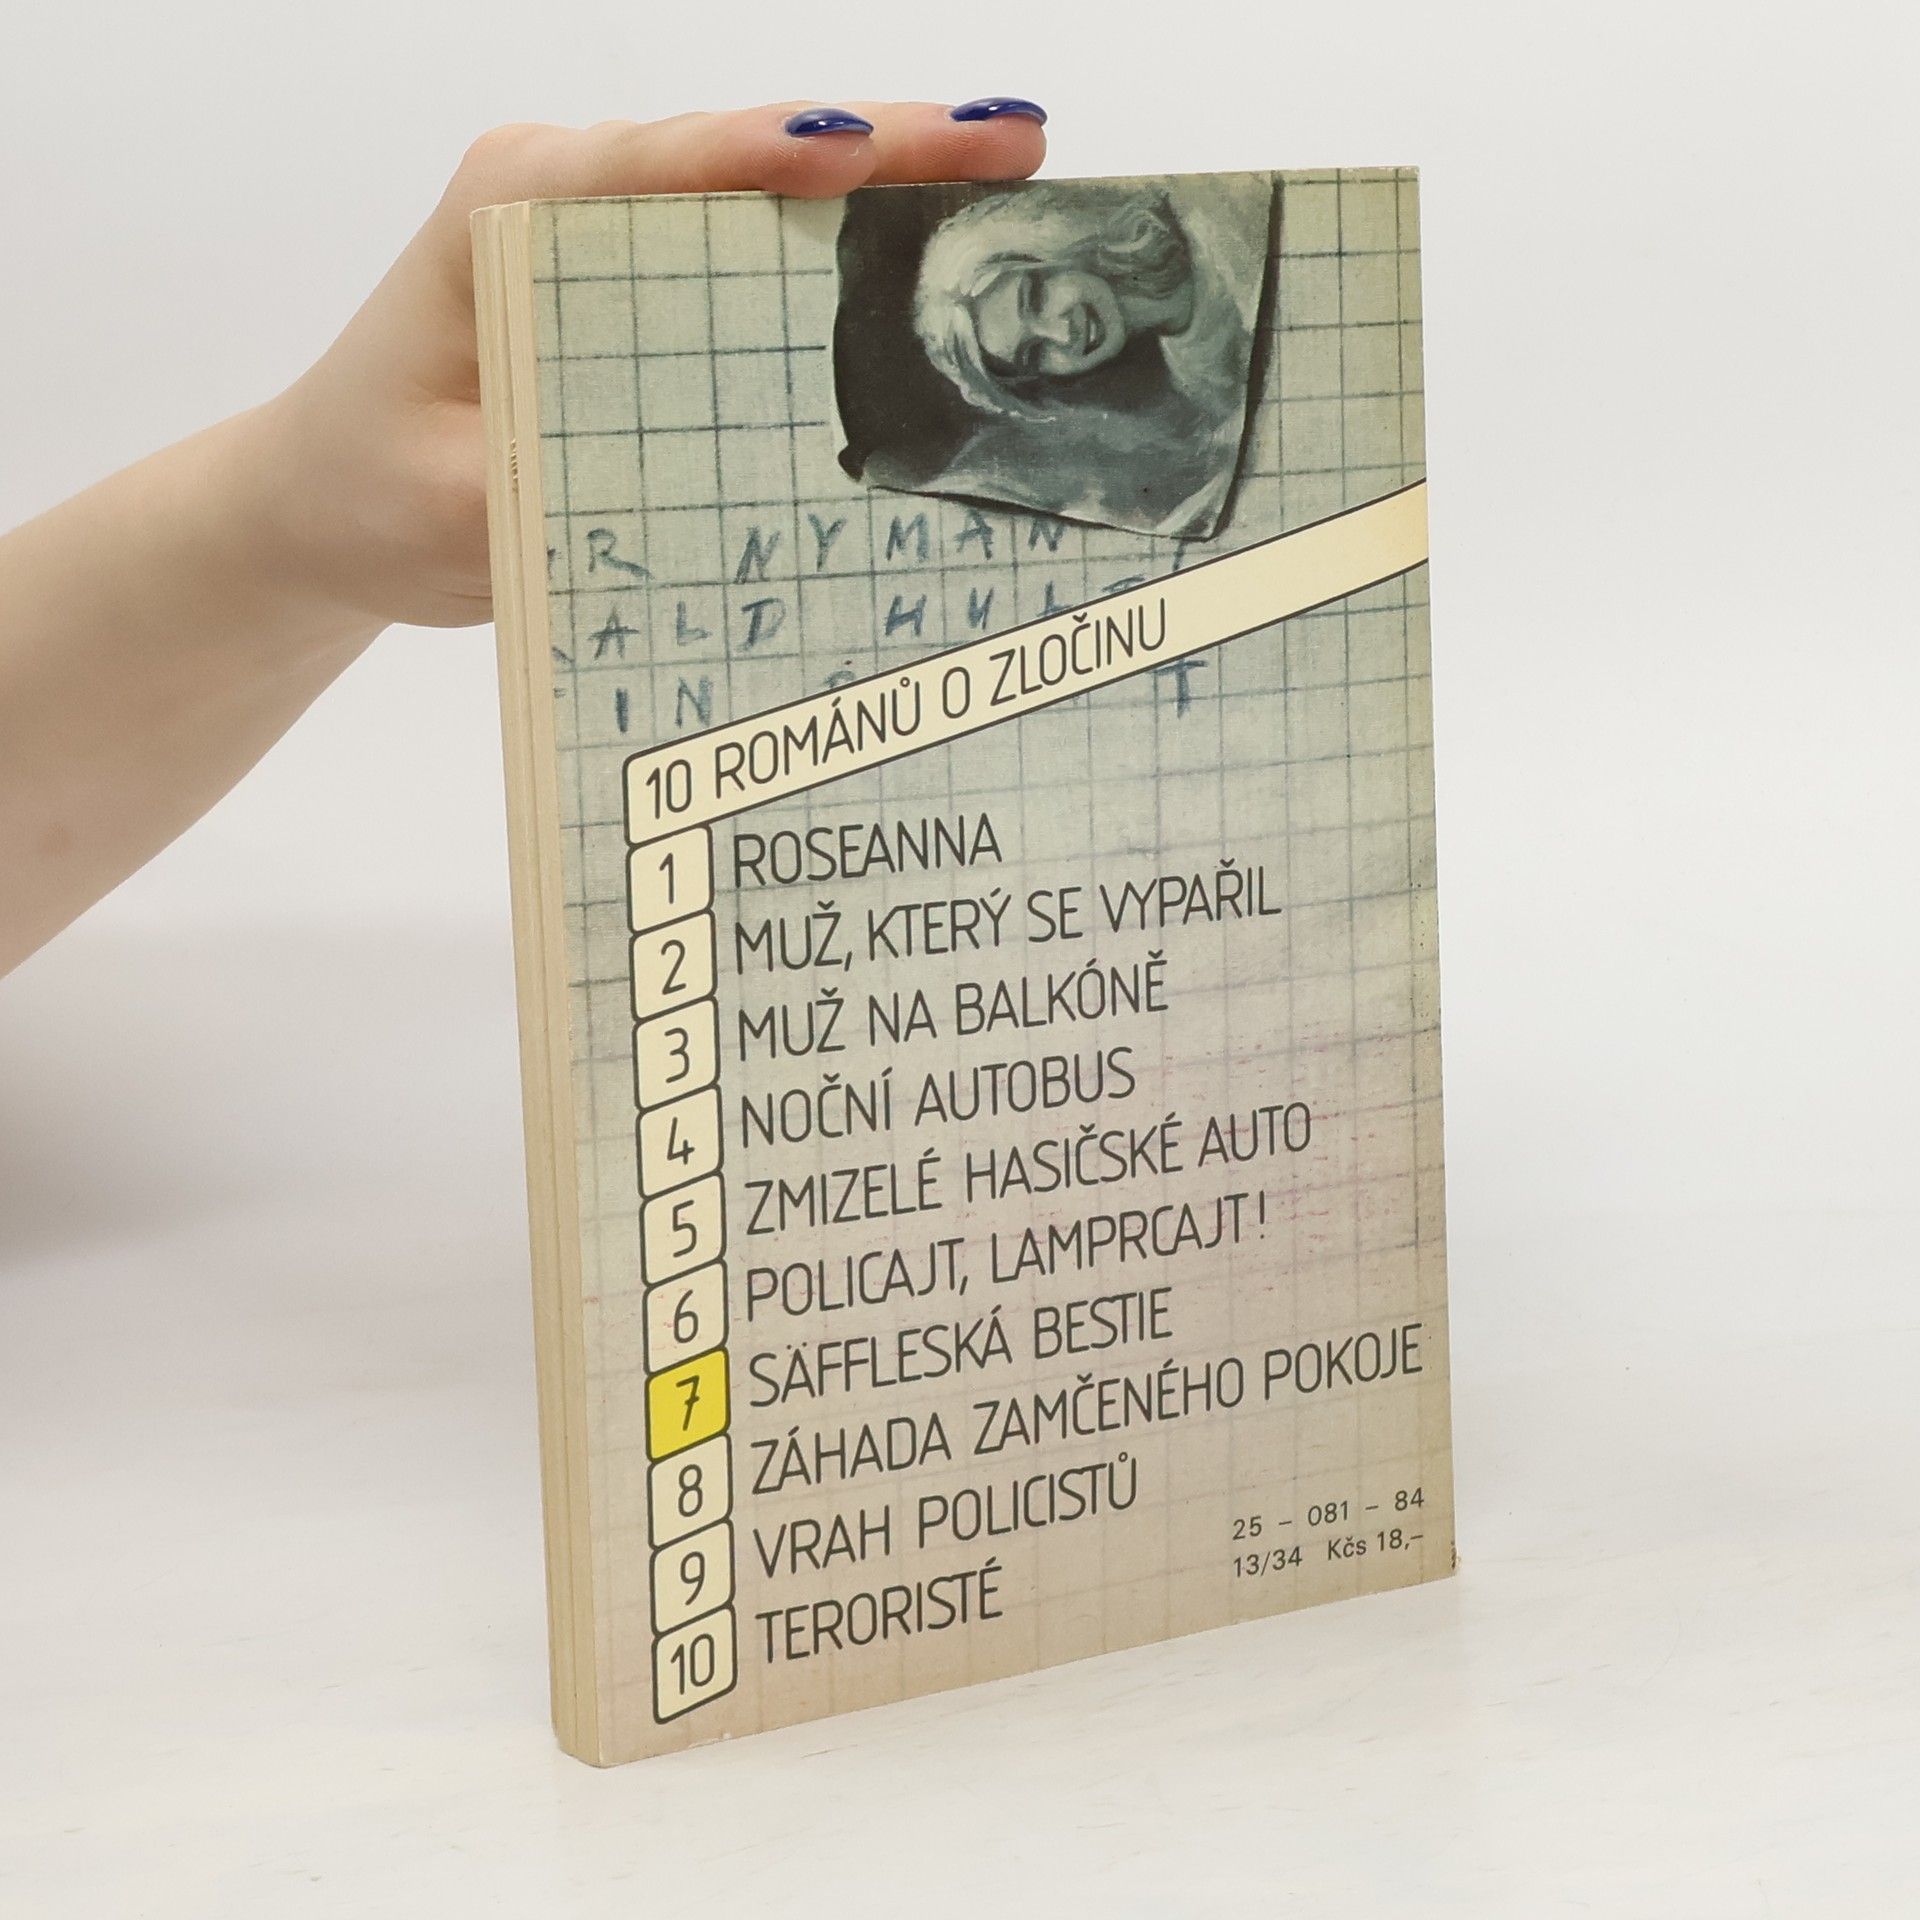 R NYMAN
ALD HUL
IN
10 ROMÁNŮ O ZLOČINU
1 ROSEANNA
2 MUŽ, KTERÝ SE VYPAŘIL
3 MUŽ NA BALKÓNĚ
4 NOČNÍ AUTOBUS
5 ZMIZELÉ HASIČSKÉ AUTO
6 POLICAJT, LAMPRCAJT!
7 SÄFFLESKÁ BESTIE
8 ZÁHADA ZAMČENÉHO POKOJE
9 VRAH POLICISTŮ
10 TERORISTÉ
25 – 081 – 84
13/34 Kčs 18,–